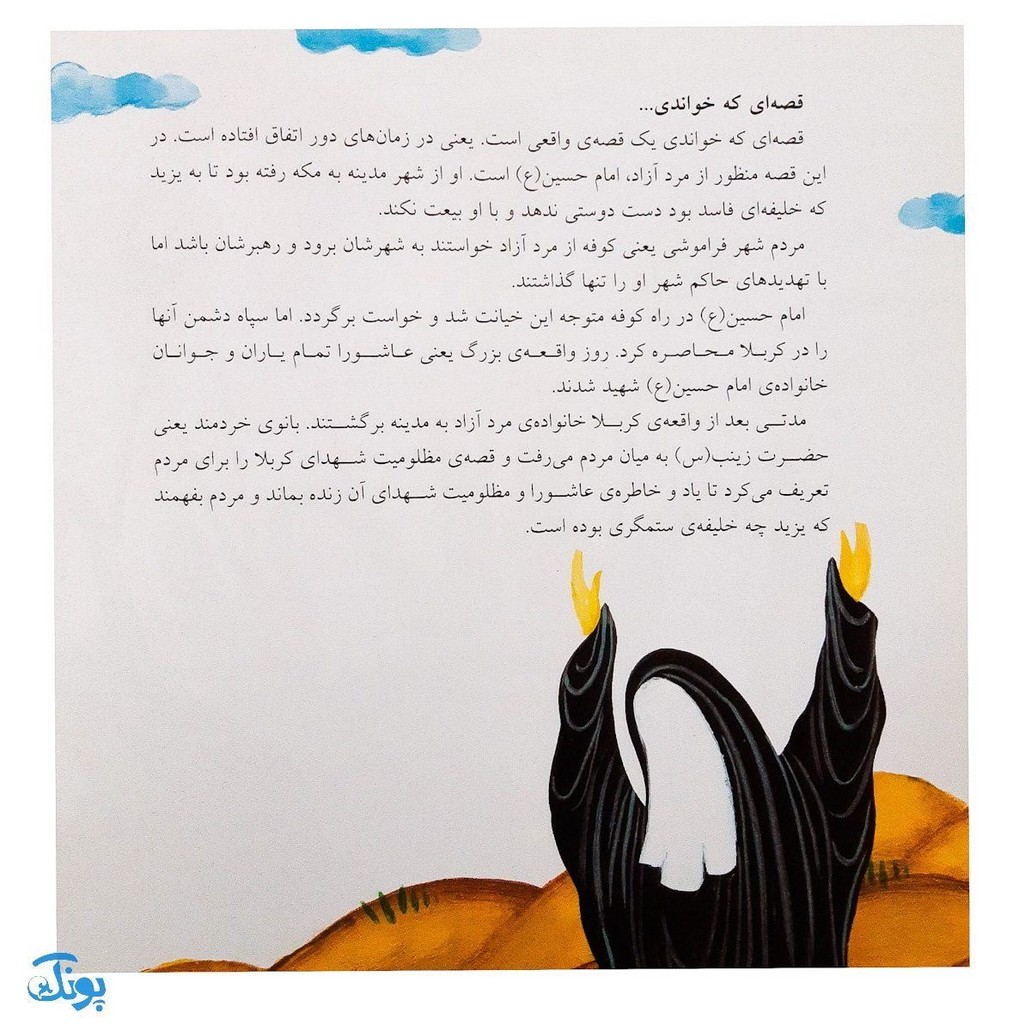 قصه‌ای که خواندی...
قصه‌ای که خواندی یک قصه‌ی واقعی است. یعنی در زمان‌های دور اتفاق افتاده است. در
این قصه منظور از مرد آزاد، امام حسین(ع) است. او از شهر مدینه به مکه رفته بود تا به یزید
که خلیفه‌ای فاسد بود دست دوستی ندهد و با او بیعت نکند.
مردم شهر فراموشی یعنی کوفه از مرد آزاد خواستند به شهرشان برود و رهبرشان باشد اما
با تهدیدهای حاکم شهر او را تنها گذاشتند.
امام حسین(ع) در راه کوفه متوجه این خیانت شد و خواست برگردد. اما سپاه دشمن آنها
را در کربلا محاصره کرد. روز واقعه‌ی بزرگ یعنی عاشورا تمام یاران و جوانان
خانواده‌ی امام حسین(ع) شهید شدند.
مدتی بعد از واقعه‌ی کربلا خانواده‌ی مرد آزاد به مدینه برگشتند. بانوی خردمند یعنی
حضرت زینب(س) به میان مردم می‌رفت و قصه‌ی مظلومیت شهدای کربلا را برای مردم
تعریف می‌کرد تا یاد و خاطره‌ی عاشورا و مظلومیت شهدای آن زنده بماند و مردم بفهمند
که یزید چه خلیفه‌ی ستمگری بوده است.
پونک